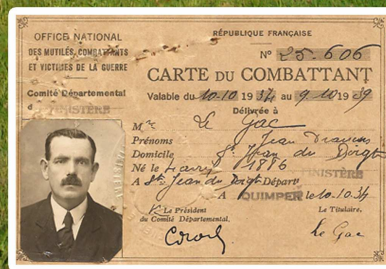 OFFICE NATIONAL
DES MUTILÉS, COMBATTANTS
ET VICTIMES DE LA GUERRE
Comité Départemental
d
FINISTÈRE
RÉPUBLIQUE FRANÇAISE
N° 25.606
CARTE DU COMBATTANT
Valable du 10-10 1934 au 9 10 1939
Délivrée à
M Le Gac
Prénoms Jean
Domicile St Jean du Doigt
Né le 1886
A St Jean du Doigt Départ
A QUIMPER le 10.10.34
Le Président
du Comité Départemental,
Le Titulaire,
Le Gac